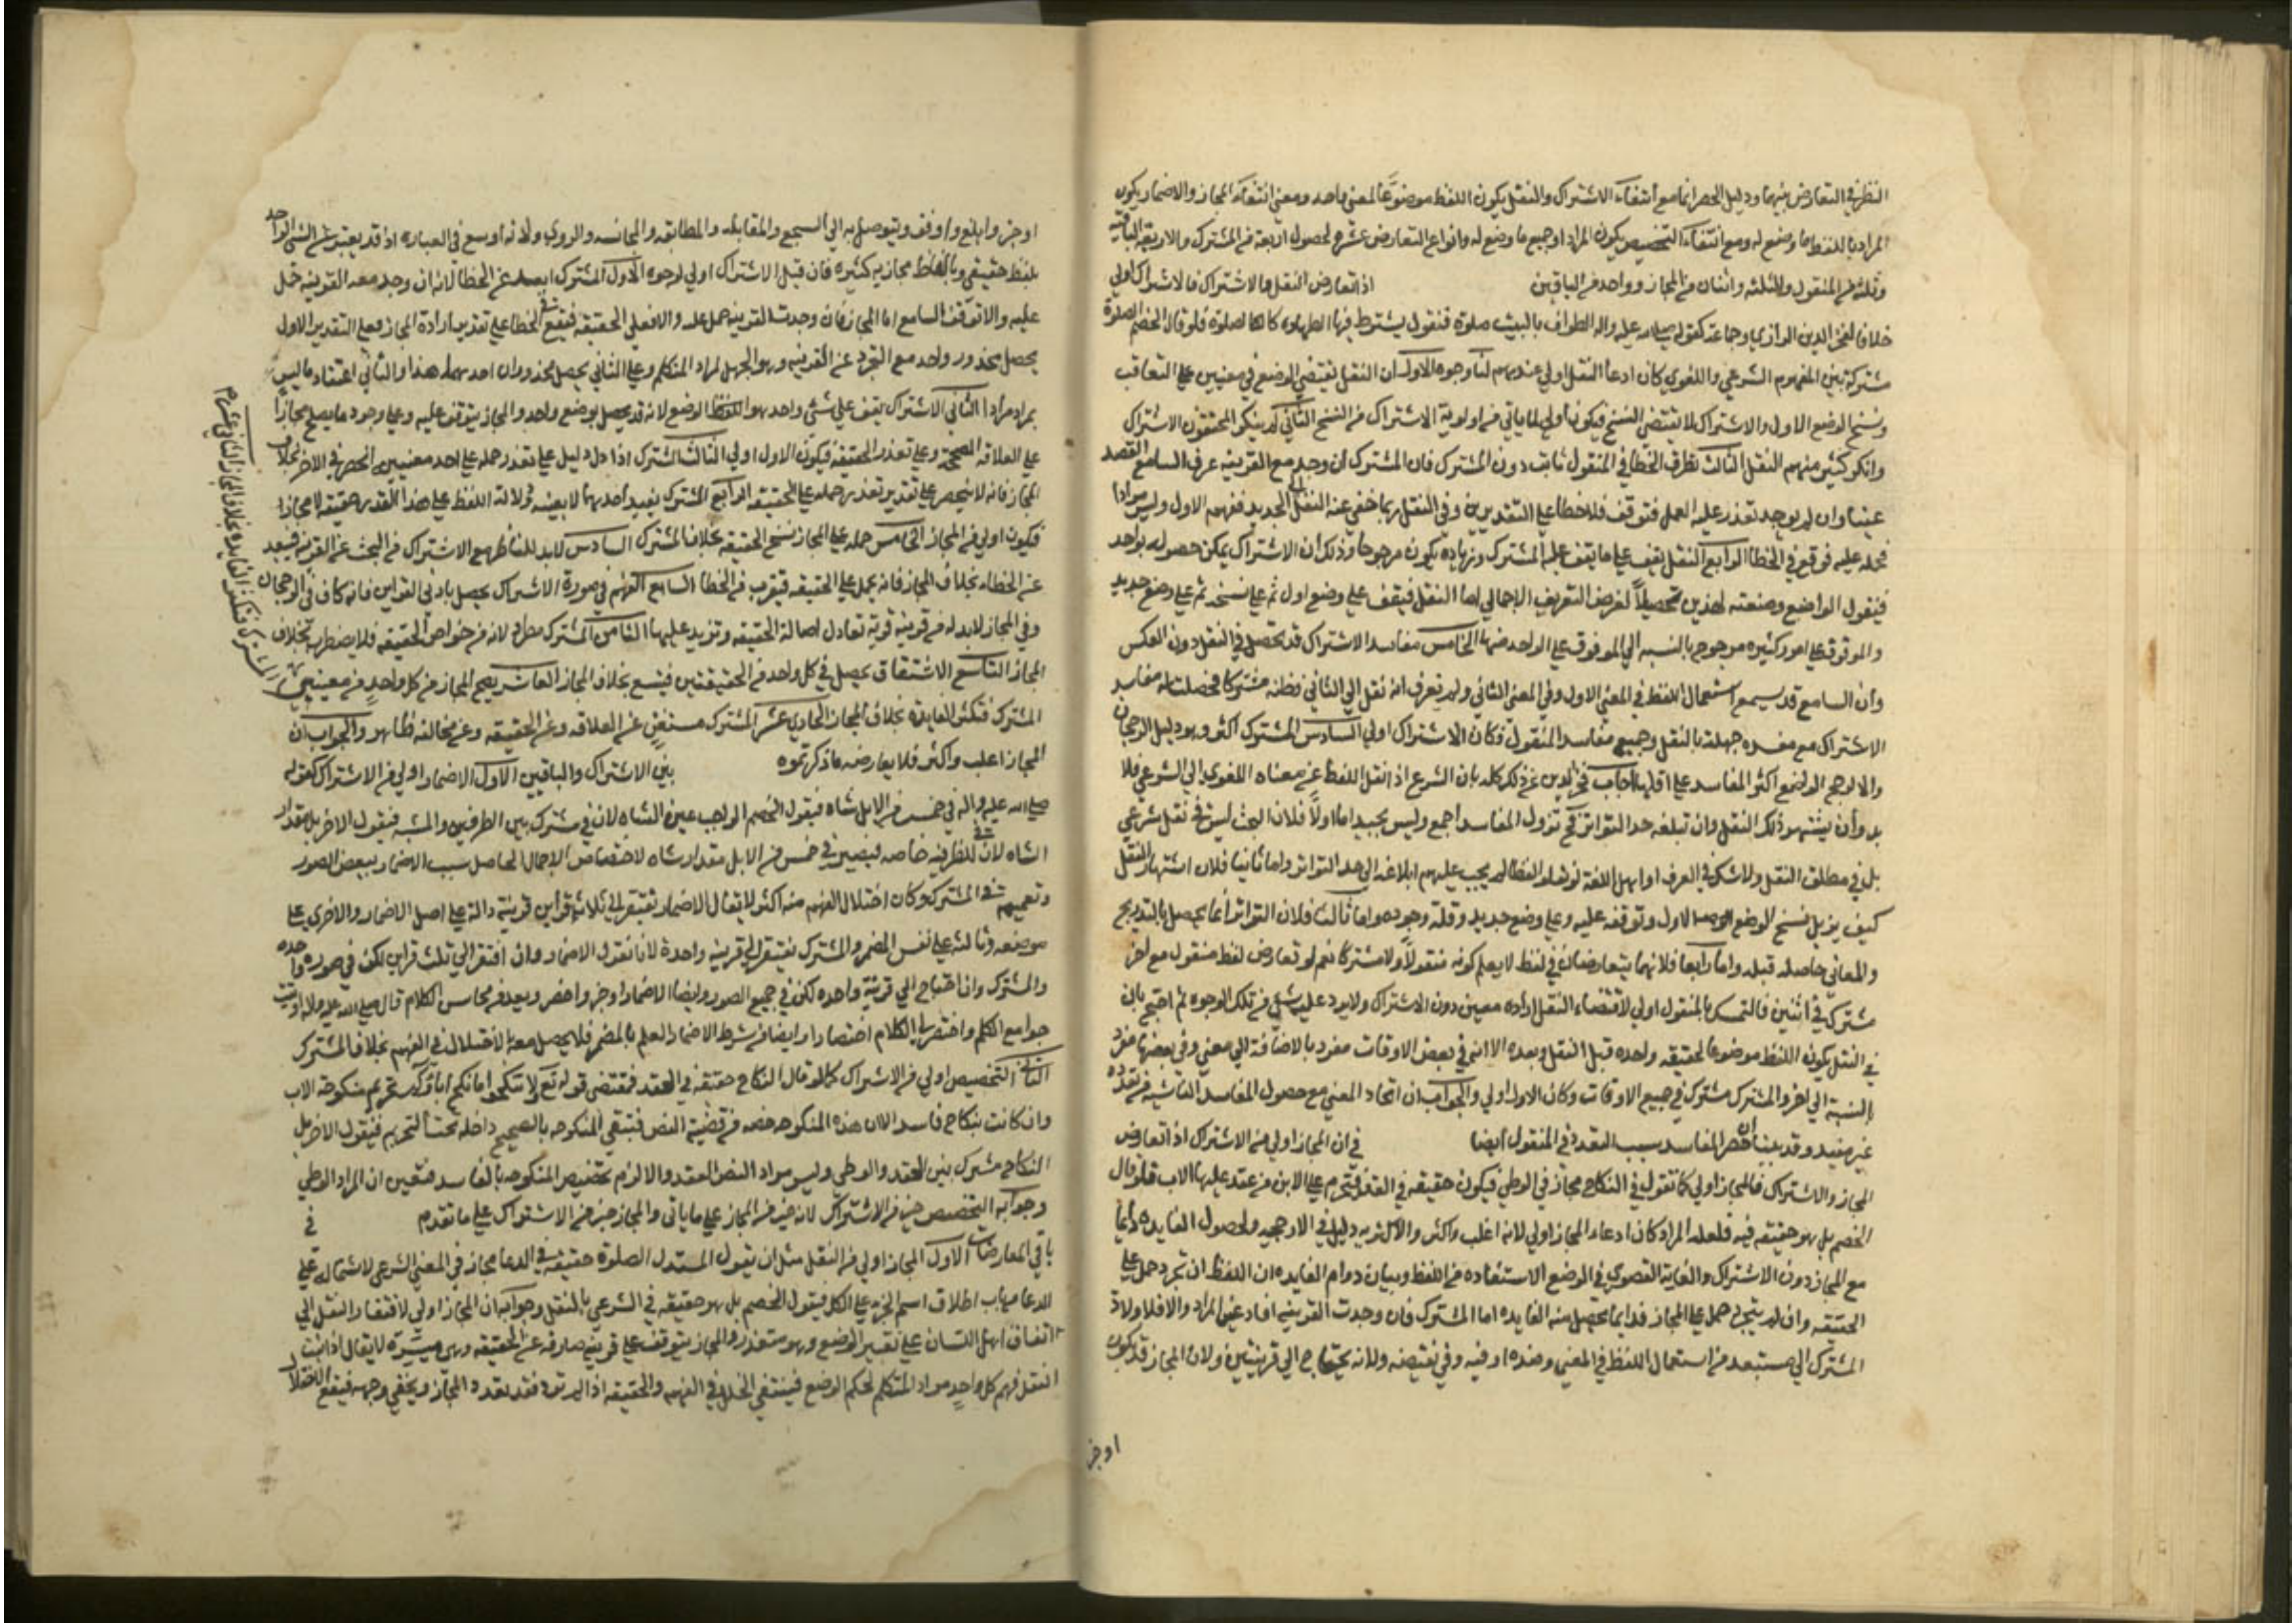 النظر في التعارض بينها ودليل الحصر انما مع انتفاء الاشتراك والنقل يكون اللفظ موضوعا لمعنى واحد ومع انتفاء المجاز والاضمار يكون
المراد باللفظ ما وضع له ومع انتفاء التخصيص يكون المراد جميع ما وضع له وانواع التعارض عشرة لحصول اربعة من المشترك والاربعة الباقيه
وثلثه من المنقول والثلثه واثنان من المجاز وواحد من الباقيين اذا تعارض النقل والاشتراك فالاشتراك اولى
خلافا لفخر الدين الرازي وجماعة كقوله صلى الله عليه واله الطواف بالبيت صلوة فنقول يشترط فيها الطهارة كالصلوة فلو قال الخصم الصلوة
مشتركة بين المفهوم الشرعي واللغوي كان ادعا النقل اولى عندهم لنا وجوه الاول ان النقل يقتضي الوضع في معنيين على التعاقب
ونسخ الوضع الاول والاشتراك لا يقتضي النسخ فيكون اولى لما ياتي من اولوية الاشتراك من النسخ الثاني لم ينكر المحققون الاشتراك
وانكر كثير منهم النقل الثالث تطرق الخطا في المنقول ثابت دون المشترك فان المشترك ان وجد مع القرينه عرف السامع القصد
عينا وان لم يوجد تعذر عليه العمل فتوقف فلا خطا على التقديرين وفي النقل ربما خفي عنه النقل الجديد ففهم الاول وليس مرادا
فحمله عليه فوقع في الخطا الرابع النقل يقف على ما يقف عليه المشترك وزيادة فيكون مرجوحا وذلك ان الاشتراك يمكن حصوله بواحد
فيقول الواضع وضعته لهذين تحصيلا لغرض التعريف الاجمالي اما النقل فيقف على وضع اول ثم على نسخه ثم على وضع جديد
والموقوف على امور كثيره مرجوح بالنسبه الى الموقوف على الواحد منها الخامس مفاسد الاشتراك قد تحصل في النقل دون العكس
وان السامع قد يسمع استعمال اللفظ في المعنى الاول وفي المعنى الثاني ولم يعرف انه نقل الى الثاني فظنه مشتركا فحصلت له مفاسد
الاشتراك مع مفسده جهله بالنقل وجميع مفاسد المنقول فكان الاشتراك اولى السادس المشترك اكثر وهو دليل الرجحان
والا لرجح الواضع اكثر المفاسد على اقلها اجاب فخر الدين عن ذلك كله بان الشرع اذا نقل اللفظ عن معناه اللغوي الى الشرعي فلا
بد وأن يشتهر ذلك النقل وان تبلغه حد التواتر فح تزول المفاسد اجمع وليس بجيد اما اولا فلان البحث ليس في نقل شرعي
بل في مطلق النقل ولا شك في العرف او اهل اللغة لو نقلوا لفظا لم يجب عليهم ابلاغه الى حد التواتر واما ثانيا فلان اشتهار النقل
كيف يزيل نسخ الوضع الاول وتوقفه عليه وعلى وضع جديد وقلة وجوده واما ثالثا فلان التواتر انما يحصل بالتدريج
والمعاني حاصله قبله واما رابعا فلانهما يتعارضان في لفظ لا يعلم كونه منقولا ولا مشتركا نعم لو تعارض لفظ منقول مع اخر
مشترك في اثنين فالتمسك بالمنقول اولى لاقتضاء النقل ارادة معين دون الاشتراك ولا يرد عليه شي من تلك الوجوه ثم احتج بان
في النقل يكون اللفظ موضوعا لحقيقه واحده قبل النقل وبعده الا انه في بعض الاوقات مفرد بالاضافة الى معنى وفي بعضها مفرد
بالنسبة الى اخر والمشترك مشترك في جميع الاوقات وكان الاول اولى والجواب ان اتحاد المعنى مع حصول المفاسد الناشيه من تعدده
غير مفيد وقد بينا ان اكثر المفاسد بسبب التعدد في المنقول ايضا في ان المجاز اولى من الاشتراك اذا تعارض
المجاز والاشتراك فالمجاز اولى كما نقول في النكاح مجاز في الوطي فيكون حقيقه في العقد فتحرم على الابن من عقد عليها الاب فلو قال
الخصم بل هو حقيقه فيه فلعله المراد كان ادعاء المجاز اولى لانه اغلب واكثر والاكثريه دليل في الارجحيه ولحصول الفايده دايما
مع المجاز دون الاشتراك والغاية القصوى في الوضع الاستفاده من اللفظ وبيان دوام الفايده ان اللفظ ان تجرد حمل على
الحقيقه وان لم يتجرد حمل على المجاز فدايما يحصل منه الفايده اما المشترك فان وجدت القرينه افاد عين المراد والا فلا ولان
المشترك الى مستبعد من استعمال اللفظ في المعنى وضده او فيه وفي نقيضه ولانه يحتاج الى قرينتين ولان المجاز قد يكون
اوجز
اوجز وابلغ واوفق ويتوصل به الى السجع والمقابله والمطابقه والمجانسه والروي ولانه اوسع في العباره اذ قد يعبر عن الشي الواحد
بلفظ حقيقي وبالفاظ مجازيه كثيره فان قيل الاشتراك اولى لوجوه الاول المشترك ابعد عن الخطا لانه ان وجد معه القرينه حمل
عليه والا توقف السامع اما المجاز فان وجدت القرينه حمل عليه والا فعلى الحقيقه فيقع في الخطا على تقدير ارادة المجاز فعلى التقدير الاول
يحصل محذور واحد مع التجرد عن القرينه وهو الجهل لمراد المتكلم وعلى الثاني يحصل محذوران احدهما هذا والثاني اعتقاد ما ليس
بمراد مرادا الثاني الاشتراك يقف على شي واحد هو الوضع لانه قد يحصل بوضع واحد والمجاز يتوقف عليه وعلى وجود ما يصلح مجازا
على العلاقه المصححة وعلى تعذر الحقيقه فيكون الاول اولى الثالث المشترك اذا دل دليل على تعذر حمله على احد معنييه انحصر في الاخر بخلاف
المجاز فانه لا ينحصر على تقدير تعذر حمله على الحقيقه الرابع المشترك يفيد احدهما لا بعينه ودلالة اللفظ على هذا القدر حقيقه لا مجازا
فيكون اولى من المجاز الخامس حمله على المجاز نسخ الحقيقه بخلاف المشترك السادس لا بد للناظر مع الاشتراك من البحث عن القرينه فيبعد
عن الخطاء بخلاف المجاز فانه يحمل على الحقيقه فيقرب من الخطا السابع الفهم في صورة الاشتراك يحصل بادنى القراين فانه كاف في الرجحان
وفي المجاز لا بد له من قرينه قوية تعادل اصالة الحقيقه وتزيد عليها الثامن المشترك مطرد لانه من خواص الحقيقه فلا يضطرب بخلاف
المجاز التاسع الاشتقاق يحصل في كل واحد من الحقيقتين فيتسع بخلاف المجاز العاشر يصح المجاز من كل واحد من معنيي
المشترك فتكثر الفايدة بخلاف المجاز الحادي عشر المشترك مستغن عن العلاقه وعن الحقيقه وعن مخالفه ظاهر والجواب ان
المجاز اغلب واكثر فلا يعارضه ما ذكرتموه بين الاشتراك والباقيين الاول الاضمار اولى من الاشتراك كقوله
صلى الله عليه واله في خمس من الابل شاه فيقول الخصم الواجب عين الشاه لان في مشترك بين الظرفيه والسببيه فيقول الاخر بل مقدار
الشاه لان في للظرفيه خاصه فيصير في خمس من الابل مقدار شاه لاختصاص الاجمال الحاصل بسبب الاضمار ببعض الصور
وتعميمه في المشترك وكان اختلال الفهم منه اكثر لا يقال الاضمار يفتقر الى ثلاث قراين قرينة دالة على اصل الاضمار والاخرى على
موضعه وثالثه على نفس المضمر والمشترك يفتقر الى قرينه واحدة لانا نقول الاضمار وان افتقر الى ثلث قراين لكن في صوره واحده
والمشترك وان احتاج الى قرينة واحده لكن في جميع الصور وايضا الاضمار اوجز واخصر ويعد من محاسن الكلام قال صلى الله عليه واله اوتيت
جوامع الكلم واختصر لي الكلام اختصارا وايضا من شرط الاضمار العلم بالمضمر فلا يحصل معه الاختلال في الفهم بخلاف المشترك
الثاني التخصيص اولى من الاشتراك كما لو قال النكاح حقيقه في العقد فمقتضى قوله تع ولا تنكحوا ما نكح اباؤكم تحريم منكوحة الاب
وان كانت بنكاح فاسد الا ان هذه المنكوحه خصه من قضية النص فتبقى المنكوحه بالصحيح داخله تحت التحريم فيقول الاخر بل
النكاح مشترك بين العقد والوطي وليس مراد النص العقد والا لزم تخصيص المنكوحه بالفاسد فتعين ان المراد الوطي
وجوابه التخصيص خير من الاشتراك لانه خير من المجاز على ما ياتي والمجاز خير من الاشتراك على ما تقدم في
باقي المعارضات الاول المجاز اولى من النقل مثل ان يقول المستدل الصلوة حقيقه في الدعا مجاز في المعنى الشرعي لاشتماله على
الدعا من باب اطلاق اسم الجزء على الكل فيقول الخصم بل هو حقيقه في الشرعي بالنقل وجوابه ان المجاز اولى لافتقار النقل الى
اتفاق اهل اللسان على تغيير الوضع وهو متعذر والمجاز يتوقف على قرينه صارفه عن الحقيقه وهي متيسرة لا يقال اذا ثبت
النقل فهم كل واحد مراد المتكلم لحكم الوضع فينتفي الخلل في الفهم والحقيقه اذا لم ترد فقد تعدد المجاز ويخفى وجهه فيقع الاختلال
المشترك فتكثر الفايده بخلاف المجاز الثاني عشر